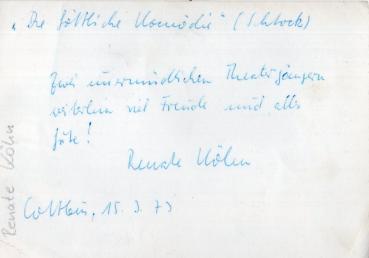 "Die göttliche Komödie" (Schtock)
Zwei unermüdlichen Theatergängern
weiterhin viel Freude und alles
Gute!
Renate Köhn
Cottbus, 15. 3. 73
Renate Köhn